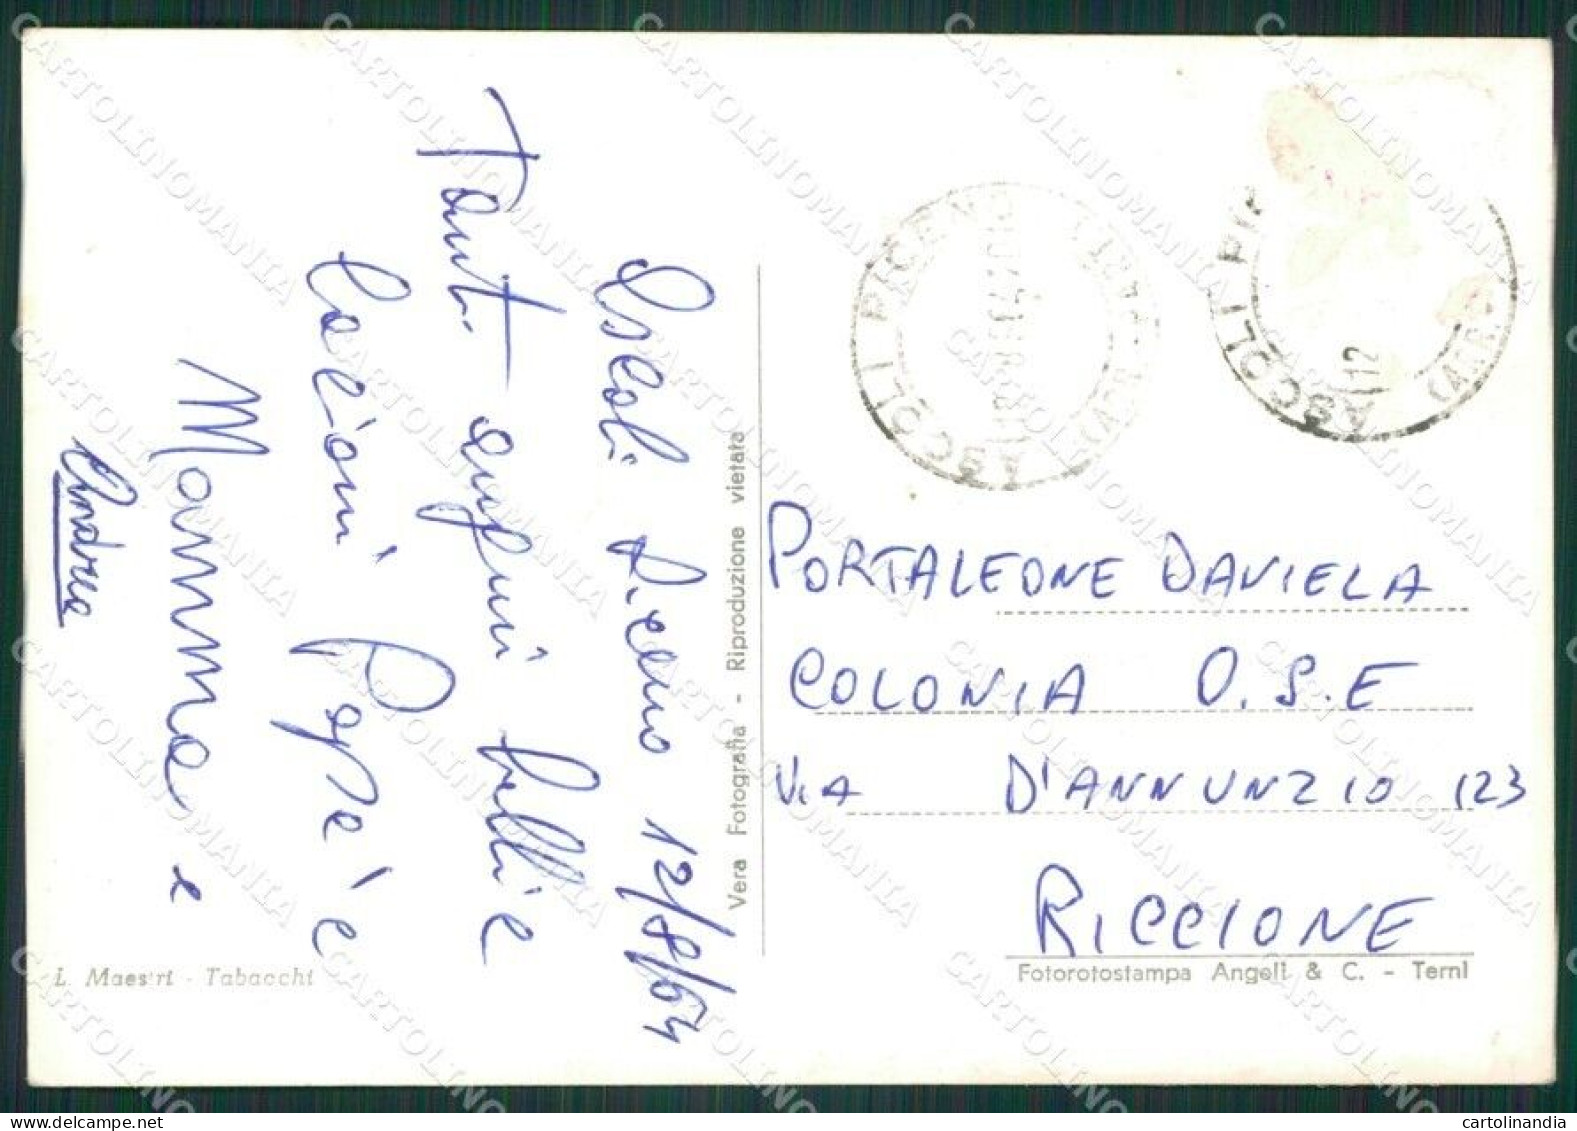 Ascoli Piceno 12/8/64
Tanti auguri belli e
bacioni Papà e
Mamma e
Andrea
L. Maestri - Tabacchi
Vera Fotografia - Riproduzione vietata
ASCOLI PICENO
ASCOLI PI
12
PORTALEONE DANIELA
COLONIA O.S.E
VIA D'ANNUNZIO 123
RICCIONE
Fotorotostampa Angeli & C. - Terni
CARTOLINOMANIA
cartolinandia